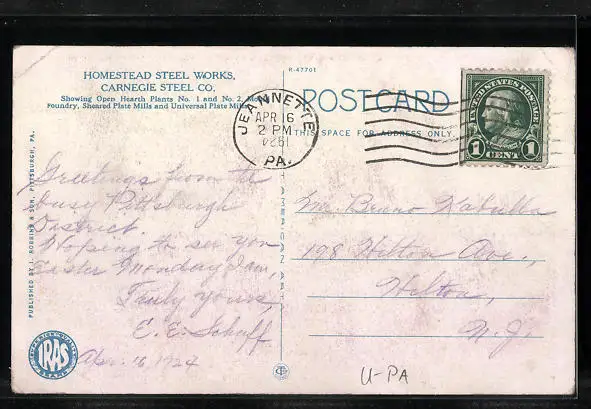 HOMESTEAD STEEL WORKS,
CARNEGIE STEEL CO.
Showing Open Hearth Plants No. 1 and No. 2,
Foundry, Sheared Plate Mills and Universal Plate Mills
R-47701
POSTCARD
THIS SPACE FOR ADDRESS ONLY
JEANNETTE
APR 16
2 PM
PA.
UNITED STATES POSTAGE
1 CENT 1
PUBLISHED BY I. ROBBINS & SON, PITTSBURGH, PA.
Greetings from the
busy Pittsburgh
District.
Hoping to see you
Easter Monday I am,
Truly yours,
E. E.
Apr. 16, 1924
Mr. Bruno
198 Hilton Ave.,
Hilton,
N. J.
IRAS
U-PA